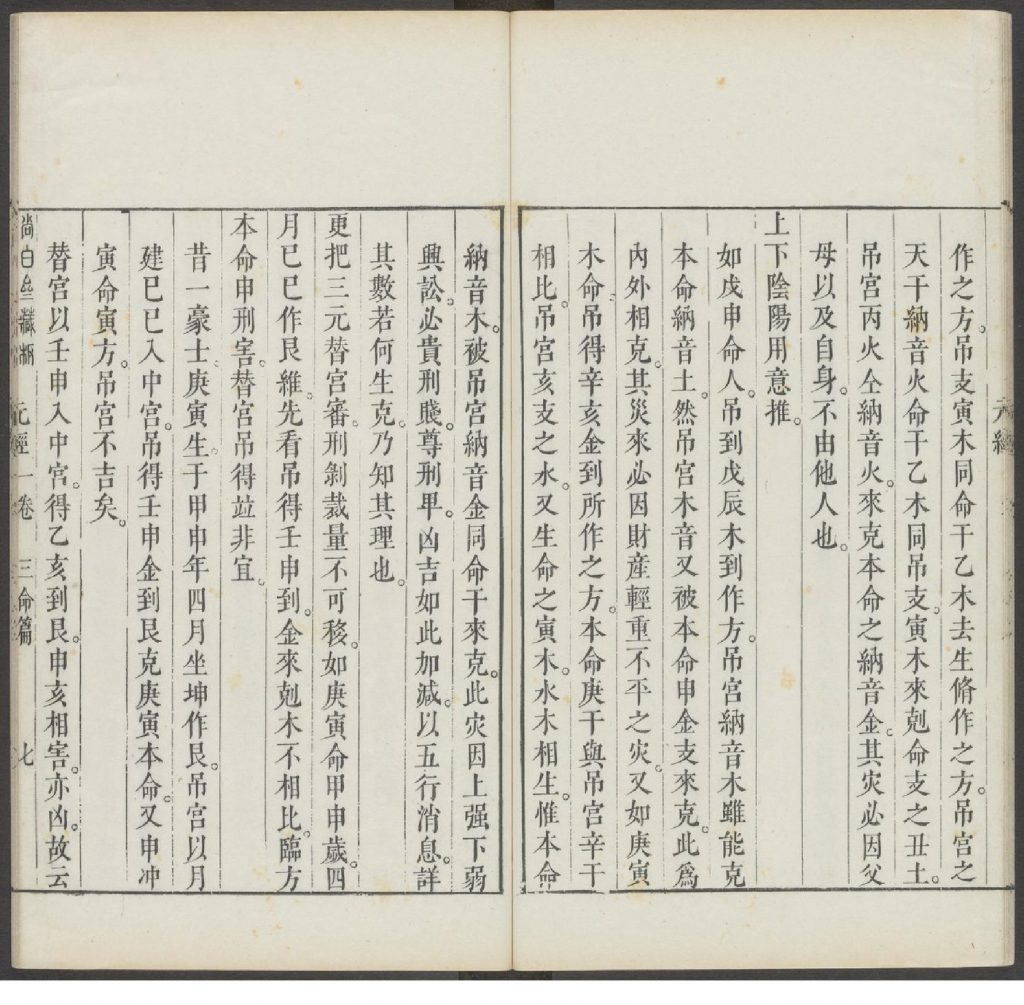 作之方。吊支寅木同命干乙木去生脩作之方。吊宮之
天干納音火命干乙木同吊支。寅木來剋命支之丑土。
吊宮丙火仝納音火。來克本命之納音金。其灾必因父
母以及自身。不由他人也。
上下陰陽用意推。
如戊申命人。吊到戊辰木到作方。吊宮納音木雖能克
本命納音土。然吊宮木音又被本命申金支來克。此爲
內外相克。其災來必因財産輕重不平之灾。又如庚寅
木命。吊得辛亥金到所作之方。本命庚干與吊宮辛干
相比。吊宮亥支之水。又生命之寅木。水木相生。惟本命
納音木。被吊宮納音金同命干來克。此灾因上强下弱
興訟。必貴刑賤。尊刑卑。凶吉如此加減。以五行消息。詳
其數若何生克。乃知其理也。
更把三元替宮審。刑剝裁量不可移。如庚寅命甲申歲。四
月巳巳作艮維。先看吊得壬申到。金來剋木不相比。臨方
本命申刑害。替宮吊得竝非宜。
昔一豪士。庚寅生。于甲申年四月坐坤作艮。吊宮以月
建巳巳入中宮。吊得壬申金到艮克庚寅本命。又申冲
寅命寅方。吊宮不吉矣。
替宮以壬申入中宮。得乙亥到艮。申亥相害。亦凶。故云
尚白齋藏板 元經一卷 三命篇 七